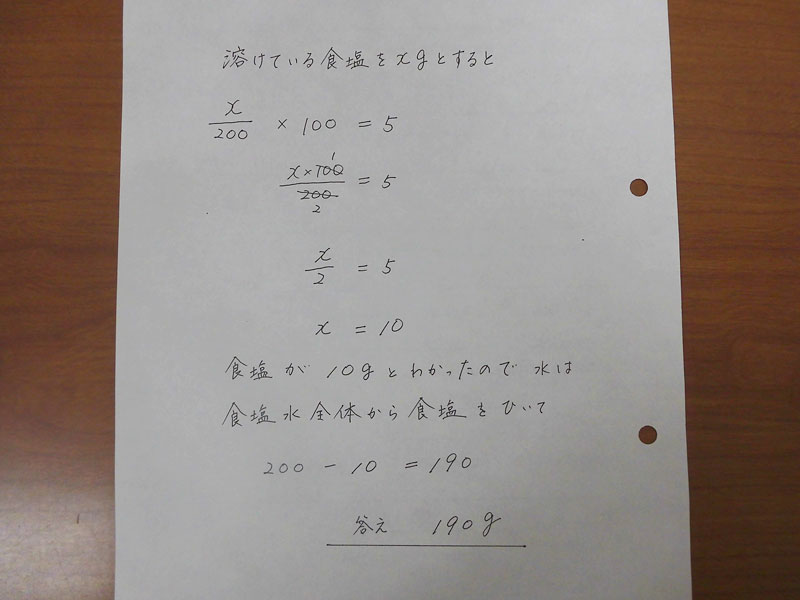 溶けている食塩をxgとすると
x/200 × 100 = 5
x×100/200 = 5
1
2
x/2 = 5
x = 10
食塩が10gとわかったので水は
食塩水全体から食塩をひいて
200 - 10 = 190
答え 190g